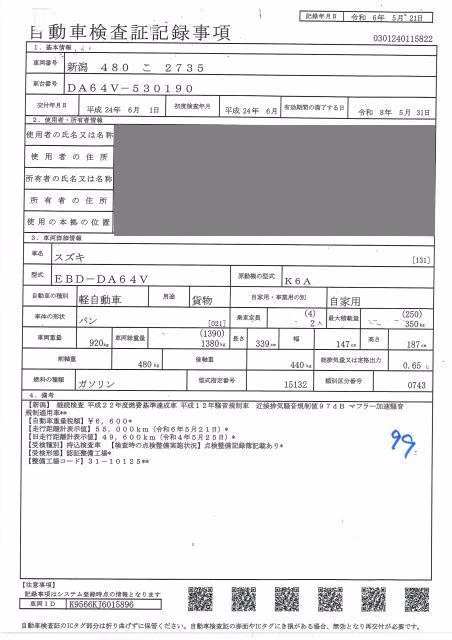 記録年月日 令和 6年 5月 21日
自動車検査証記録事項
0301240115822
1. 基本情報
車両番号 新潟 480 こ 2735
車台番号 DA64V-530190
交付年月日 平成 24年 6月 1日 初度検査年月 平成 24年 6月 有効期間の満了する日 令和 8年 5月 31日
2. 使用者・所有者情報
使用者の氏名又は名称
使用者の住所
所有者の氏名又は名称
所有者の住所
使用の本拠の位置
3. 車両詳細情報
車名 スズキ [131]
型式 EBD-DA64V 原動機の型式 K6A
自動車の種別 軽自動車 用途 貨物 自家用・事業用の別 自家用
車体の形状 バン [021] 乗車定員 (4) 2人 最大積載量 (250) 350kg
車両重量 920kg 車両総重量 (1390) 1380kg 長さ 339cm 幅 147cm 高さ 187cm
前軸重 480kg 後軸重 440kg 総排気量又は定格出力 0.65 L
燃料の種類 ガソリン 型式指定番号 15132 類別区分番号 0743
4. 備考
【新潟】 継続検査 平成22年度燃費基準達成車 平成12年騒音規制車 近接排気騒音規制値97dB マフラー加速騒音
規制適用車**
【自動車重量税額】¥6,600*
【走行距離計表示値】55,000km(令和6年5月21日)*
【旧走行距離計表示値】49,600km(令和4年5月25日)*
【受検種別】持込検査車 【検査時の点検整備実施状況】点検整備記録簿記載あり*
【受検形態】認証整備工場*
【整備工場コード】31-10125**
99
【注意事項】
記録事項はシステム登録時点の情報となります
車両ID K9566KJ6015896
自動車検査証のICタグ部分は折り曲げずに保管ください。自動車検査証の券面やICタグにき損がある場合、無効となり再交付が必要です。